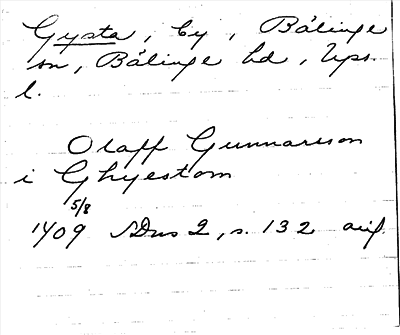 Gysta, by, Bälinge
sn, Bälinge hd, Ups.
l.
Olaff Gunnarson
i Ghyestom
5/8
1409 SDns 2, s. 132 avs.